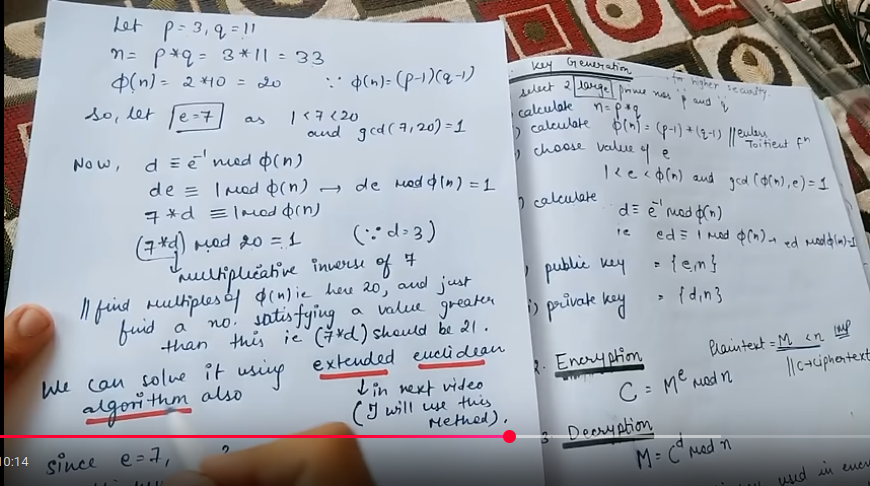 Let p = 3, q = 11
n = p * q = 3 * 11 = 33
ϕ(n) = 2 * 10 = 20 ∵ ϕ(n) = (p-1)(q-1)
So, let e = 7 as 1 < 7 < 20
and gcd(7, 20) = 1
Now, d ≡ e⁻¹ mod ϕ(n)
de ≡ 1 mod ϕ(n) → de mod ϕ(n) = 1
7 * d ≡ 1 mod ϕ(n)
(7 * d) mod 20 = 1 (∵ d = 3)
↓ multiplicative inverse of 7
// find multiples of ϕ(n) ie here 20, and just
find a no. satisfying a value greater
than this ie (7 * d) should be 21.
We can solve it using extended euclidean
algorithm also
↓ in next video
(I will use this
method).
since e = 7,
Key Generation
for higher security.
select 2 large prime nos 'p' and 'q'
calculate n = p * q
) calculate ϕ(n) = (p-1) * (q-1) // eulers
Toitient fⁿ
) choose value of e
1 < e < ϕ(n) and gcd(ϕ(n), e) = 1
) calculate
d ≡ e⁻¹ mod ϕ(n)
ie ed ≡ 1 mod ϕ(n) → ed mod ϕ(n) = 1
) public key = {e, n}
) private key = {d, n}
2. Encryption
Plaintext = M < n Imp
C = Mᵉ mod n
// C → ciphertext
3. Decryption
M = Cᵈ mod n
used in
10:14